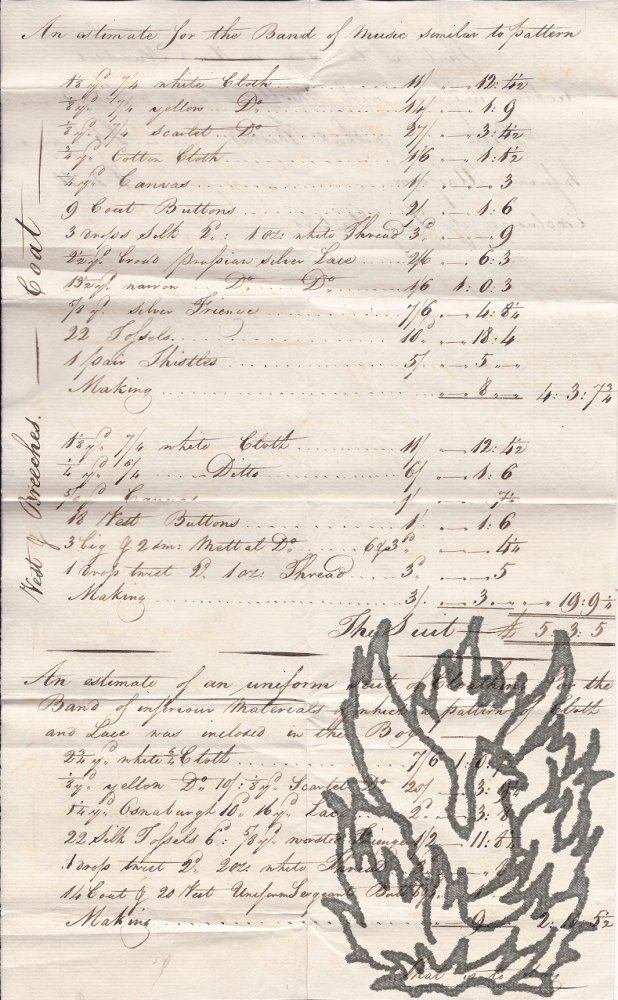 An estimate for the Band of Music similar to pattern
Coat
1 1/8 yd. 7/4 white Cloth 11/ 12: 4 1/2
1/8 yd. 7/4 yellow Do. 14/ 1: 9
1/8 yd. 7/4 scarlet Do. 27/ 3: 4 1/2
3/4 yd. Cotton Cloth 1/6 1: 1 1/2
1/4 yd. Canvas 1/ 3
9 Coat Buttons 2/ 1: 6
3 drops Silk 2d.: 1 oz: white Thread 3d 9
2 1/2 yd. broad prussian silver Lace 2/6 6: 3
13 1/2 yd. narrow Do. Do. 1/6 1: 0: 3
5/8 yd. silver Frienge 7/6 4: 8 1/4
22 Tossels 10d 18: 4
1 pair Thistles 5/ 5
Making 8 4: 3: 7 3/4
Vest & Breeches.
1 1/8 yd. 7/4 white Cloth 11/ 12: 4 1/2
1/4 yd. 6/4 Ditto 6/ 1: 6
5/8 yd Canvas 1/ 7 1/2
18 Vest Buttons 1/ 1: 6
3 big & 2 sm: Mettal Do. 6 & 3d 4 1/4
1 drop twist 2d. 1 oz: Thread 3d 5
Making 3/ 3 19: 9 1/4
The Suit £ 5 3: 5
An estimate of an uniform suit of Cloathing the
Band of inferiour Materials which a pattern of Cloth
and Lace was inclosed in the Box
2 3/4 yd. white 6/4 Cloth 7/6 1: 0:
1/8 yd. yellow Do. 10/: 1/8 yd. Scarlet Do 3:
1 1/4 yd. Osnaburgh 10d. 16 yd. Lace 2d. 3:
22 Silk Tossels 6d: 5/8 yd. worsted Frienge 1/2 11:
1 drop twist 2d. 2 oz: white Thread
14 Coat & 20 Vest Uniform Sergeant
Making 9 2: 10 5 1/2
That is to